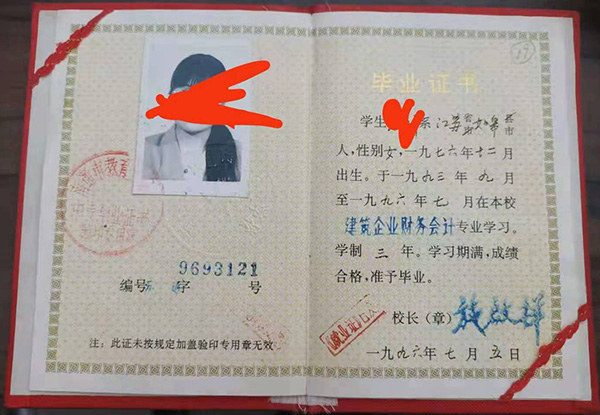 编号 字 9693121 号
注：此证未按规定加盖验印专用章无效
19
毕业证书
学生 系 江苏省 如皋县市
人，性别女，一九七六年十二月
出生。于一九九三年九月
至一九九六年七月在本校
建筑企业财务会计专业学习。
学制三年。学习期满，成绩
合格，准予毕业。
校长（章）
一九九六年七月五日